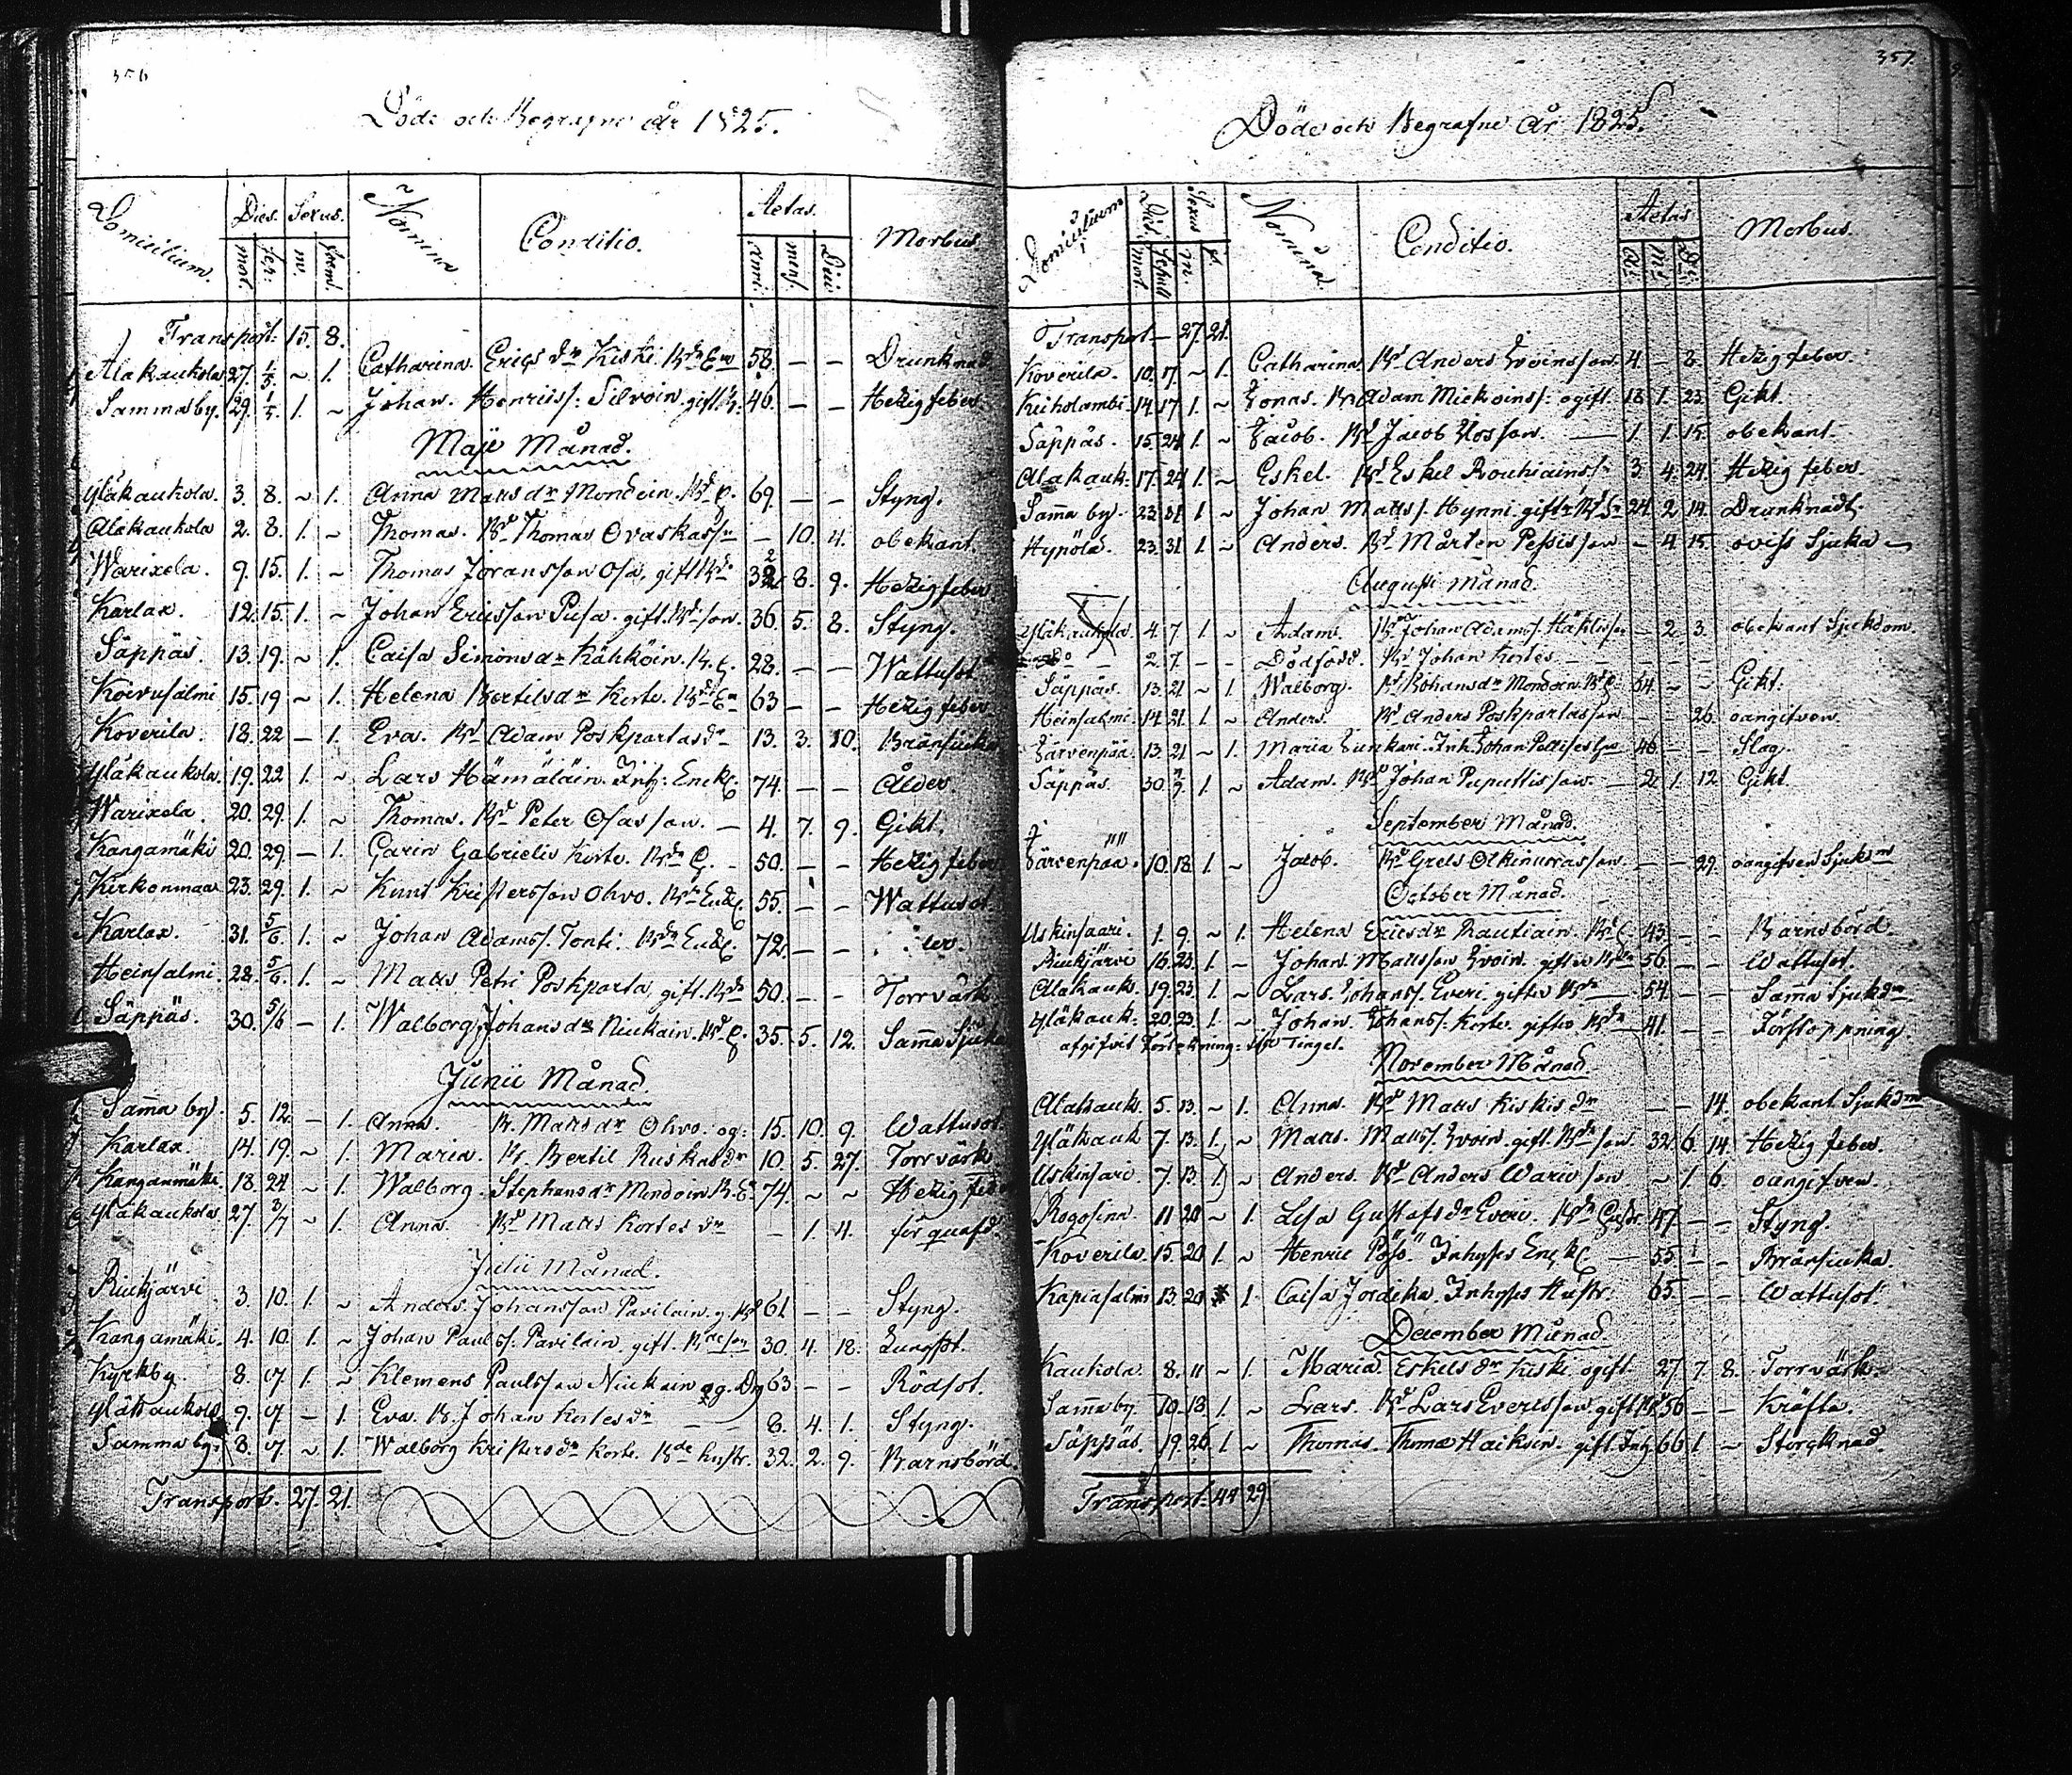 356
Döde och Begrafne År 1825.
Domicilium. Dies. Sexus. Nomina Conditio. Aetas. Morbus
mort. sep: m. foem. anni. mens. Dies
Transport. 15. 8.
Alakaukola. 27. 1/5 ~ 1. Catharina Erics dr Kiski. 58. — — Drunknad
Sammaby. 29. 1/5. 1. ~ Johan Henrics: Silvoin. gift 46. — — Hetzig feber.
Maji Månad.
Yläkaukola. 3. 8. ~ 1. Anna Matts dr Mondoin. 69. — — Styng.
Alakaukola 2. 8. 1. ~ Thomas. Bd Thomas Ovaskas — 10. 4. obekant.
Warixela. 9. 15. 1. ~ Thomas Joransson Osa, gift 32 8. 9. Hetzig feber
Karlax. 12. 15. 1. ~ Johan Ericsson Pusa. gift. son. 36. 5. 8. Styng.
Säppäs. 13. 19. ~ 1. Caisa Simons dr Kähköin. 28. — — Wattusot
Koivusalmi 15. 19 ~ 1. Helena Bertils dr Korte. 63 — — Hetzig feber
Koverila. 18. 22 — 1. Eva. Bd Adam Poskpartas dr 13. 3. 10. Bränsiuka
Yläkaukola. 19. 22 1. ~ Lars Hämäläin. Inh: Enck 74. — — Ålder.
Warixela. 20. 29. 1. ~ Thomas. Bd Peter Osasson. — 4. 7. 9. Gikt.
Kangamäki 20. 29. — 1. Carin Gabrielis Korte. 50. — — Hetzig feber
Kirkonmaa 23. 29. 1. ~ Knut Kristersson Ohvo. 55. — — Wattusot
Karlax. 31. 5/6. 1. ~ Johan Adams. Tonti. 72. — —
Heinsalmi. 28. 5/6. 1. ~ Matts Petri Poskparta, gift. 50. — — Torrvärk
Säppäs. 30. 5/6 — 1. Walborg Johans dr Niukain. 35. 5. 12. Sama Sjuka
Junii Månad.
Sama by. 5. 12. — 1. Anna. B. Matts dr Ohvo. og: 15. 10. 9. Wattusot
Karlax. 14. 19. ~ 1. Maria. B. Bertil Ruskas dr 10. 5. 27. Torrvärk
Kangamäki. 18. 24 ~ 1. Walborg. Stephans dr Mondoin 74. ~ ~ Hetzig feber
Yläkaukola 27. 3/7 ~ 1. Anna. Bd Matts Kortes dr — 1. 4. för quafd.
Julii Månad.
Riukjärvi. 3. 10. 1. ~ Anders Johansson Pavilain. g. 61 — — Styng.
Kangamäki. 4. 10. 1. ~ Johan Pauls. Pavilain. gift. 30. 4. 18. Lungsot.
Kyrkby. 8. 17 1. ~ Klemens Paulsson Niukain 63 — — Rödsot.
Yläkaukola 9. 17 — 1. Eva. B. Johan Kortes dr — 8. 4. 1. Styng.
Samma by. 8. 17 ~ 1. Walborg Kristers dr Korte. Bde hustr. 32. 2. 9. Barnsbörd.
Transport. 27. 21.
357.
Döde och Begrafne År 1825.
Domicilium Dies Sexus Nomina Conditio. Aetas Morbus.
mort. Sepult m. f.
Transport — 27. 21.
Koverila. 10. 17. ~ 1. Catharina Bd Anders Ivoinsson 4 — 8. Hetzig feber.
Kiiholambi 14. 17 1. ~ Jonas. Bd Adam Mickoins: ogift 18 1. 23. Gikt.
Säppäs. 15. 24 1. ~ Jacob. Bd Jacob — 1. 1. 15. obekant.
Alakauk. 17. 24 1. ~ Eskel. Bd Eskel Rouhiains 3. 4. 24. Hetzig feber.
Sama by. 23 31 1 ~ Johan Matts. Hynni. gift 24. 2 14. Drunknadt.
Hypölä. 23. 31. 1. ~ Anders. Bd Mårten Pessisson — 4. 15. oviss Sjuka
Augusti Månad.
Yläkaukola 4. 7 1. ~ Adam. Bd Johan Adams. — 2. 3. obekant Sjukdom.
Do — 2. 7. — — Dödfödd. Bd Johan Kortes. — — —
Säppäs. 13. 21 ~ 1. Walborg. Johans dr Mondoin. 54 — — Gikt.
Heinsalmi. 14. 21. 1. ~ Anders. Bd Anders Poskpartasson — — 26. oangifven.
Järvenpää. 13. 21 ~ 1. Maria Junkari. Inh. Johan 46 — — Slag.
Säppäs. 30. 1. ~ Adam. Bd Johan Puputtisson. — 2. 1. 12. Gikt.
September Månad.
Järvenpää. 10. 18. 1. ~ Jacob. Bd Grels Olkinuorasson. — — 29. oangifven Sjukdm
October Månad.
Uskinsaari. 1. 9. ~ 1. Helena Erics dr Rautiain. 43. — — Barnsbörd.
Riukjärvi 16. 23. 1. ~ Johan Mattsson Ivoin. gifter 56. — — Wattusot.
Alakauk. 19. 23. 1. ~ Lars. Johans. Everi. gifter — 54. — — Sama Sjukdm.
Yläkauk: 20. 23 1. ~ Johan. Johans. Korte. gifter 41. — — Förstoppning
afgifvit Förtekning: Tingel.
November Månad
Alakauk. 5. 13. ~ 1. Anna. Bd Matts Kiskis dr — — 14. obekant Sjukdm
Yläkauk 7. 13. 1. ~ Matts. Matts. Ivoin. gift. son. 32. 6. 14. Hetzig feber.
Uskinsari. 7. 13. 1. ~ Anders. Bd Anders Waris son ~ 1. 6. oangifven.
Rogosina. 11 20 ~ 1. Lisa Gustafs dr Everi. 47. — — Styng.
Koverila. 15. 20 1. ~ Henric Pösö Inhyses Enck — 55 — — Bränsiuka.
Kopiasalmi 13. 20 1. Caisa Jordika. Inhyses Hustr: 65. — — Wattusot.
December Månad.
Kaukola. 8. 11 ~ 1. Maria. Eskels dr Kiski. ogift 27. 7 8. Torrvärk.
Samaby 10. 18. 1. ~ Lars. Bd Lars Everisson. gift 56 — — Kräfta.
Säppäs. 19. 26. 1 ~ Thomas. Thomæ Haikoin. gift. Inh 66 1 ~ Storgknad.
Transport. 44 29